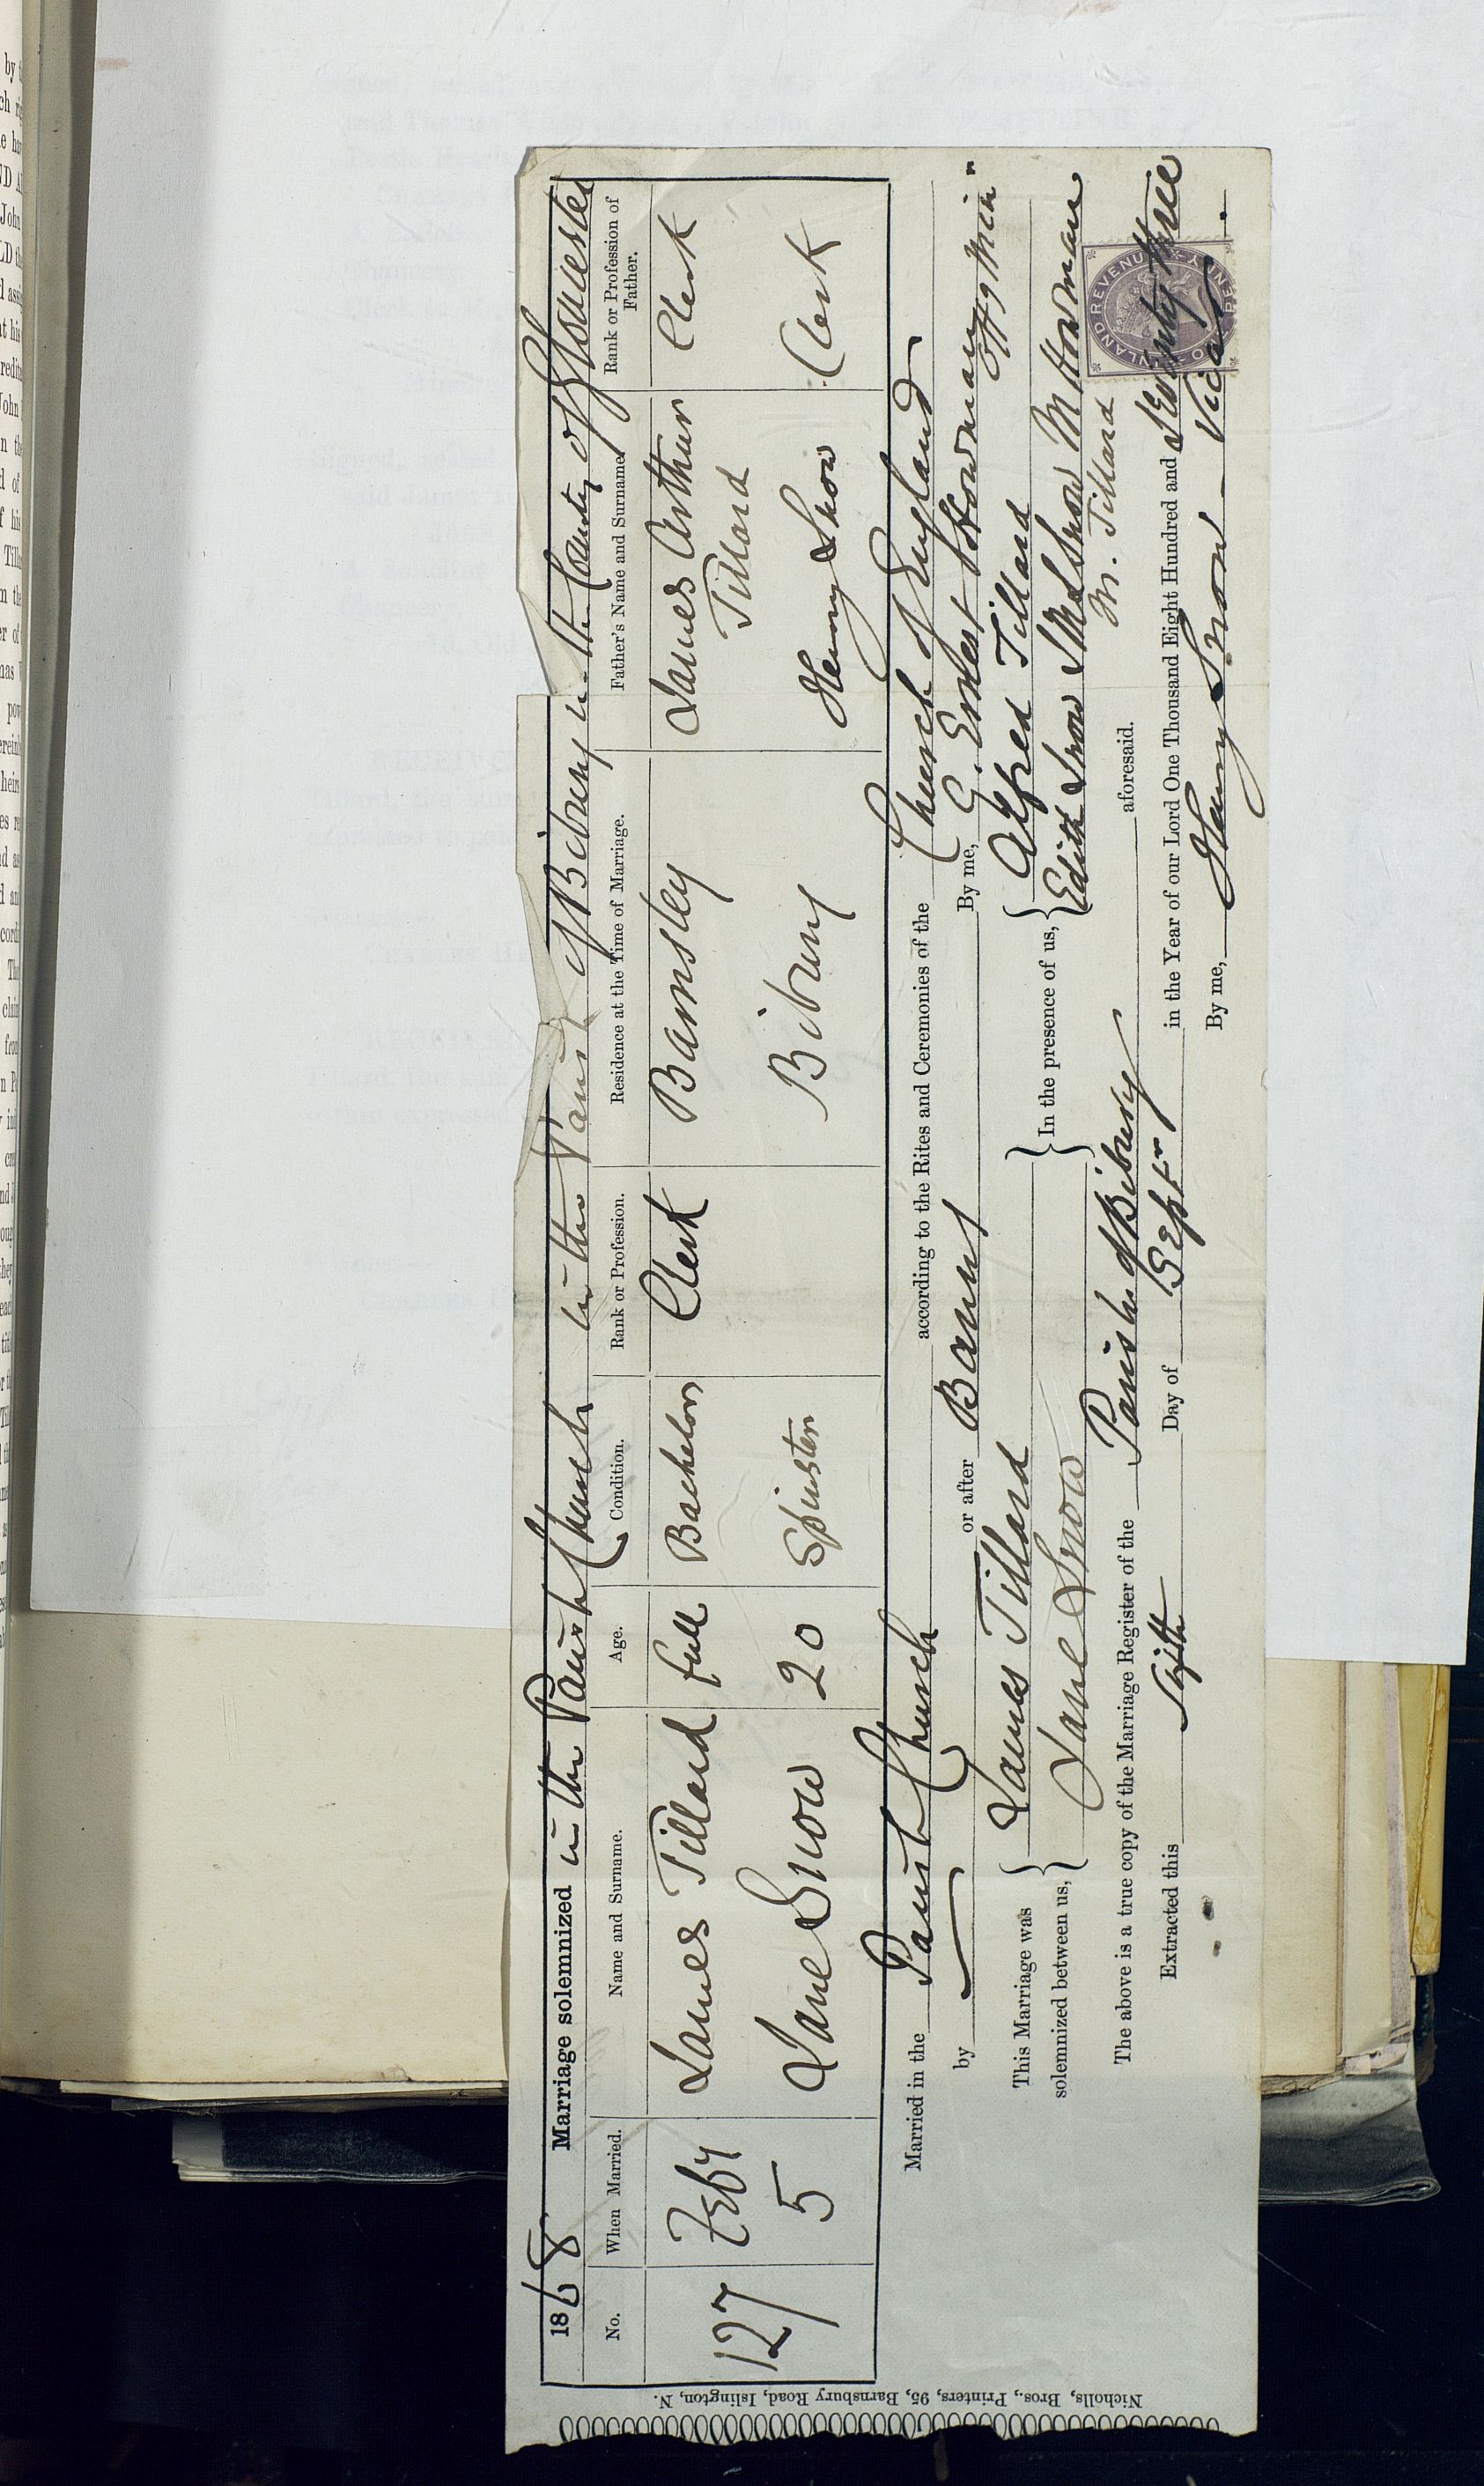 1868 Marriage solemnized in the Parish Church in the Parish of Bibury in the County of Gloucester
No. When Married. Name and Surname. Age. Condition. Rank or Profession. Residence at the Time of Marriage. Father's Name and Surname. Rank or Profession of Father.
127 Feby 5 James Tillard full Bachelor Clerk Barnsley James Arthur Tillard Clerk
Jane Snow 20 Spinster Bibury Henry Snow Clerk
Married in the Parish Church according to the Rites and Ceremonies of the Church of England
by or after Banns By me, G. Ernest Howman Offg Minr
This Marriage was solemnized between us, { James Tillard } In the presence of us, { Alfred Tillard
Jane Snow Edith Snow Snow M Howman
M. Tillard
The above is a true copy of the Marriage Register of the Parish of Bibury aforesaid.
Extracted this Fifth Day of Septr in the Year of our Lord One Thousand Eight Hundred and Seventy three
By me, Henry Snow Vicar.
INLAND REVENUE
PENNY
Nicholls, Bros., Printers, 95, Barnsbury Road, Islington, N.